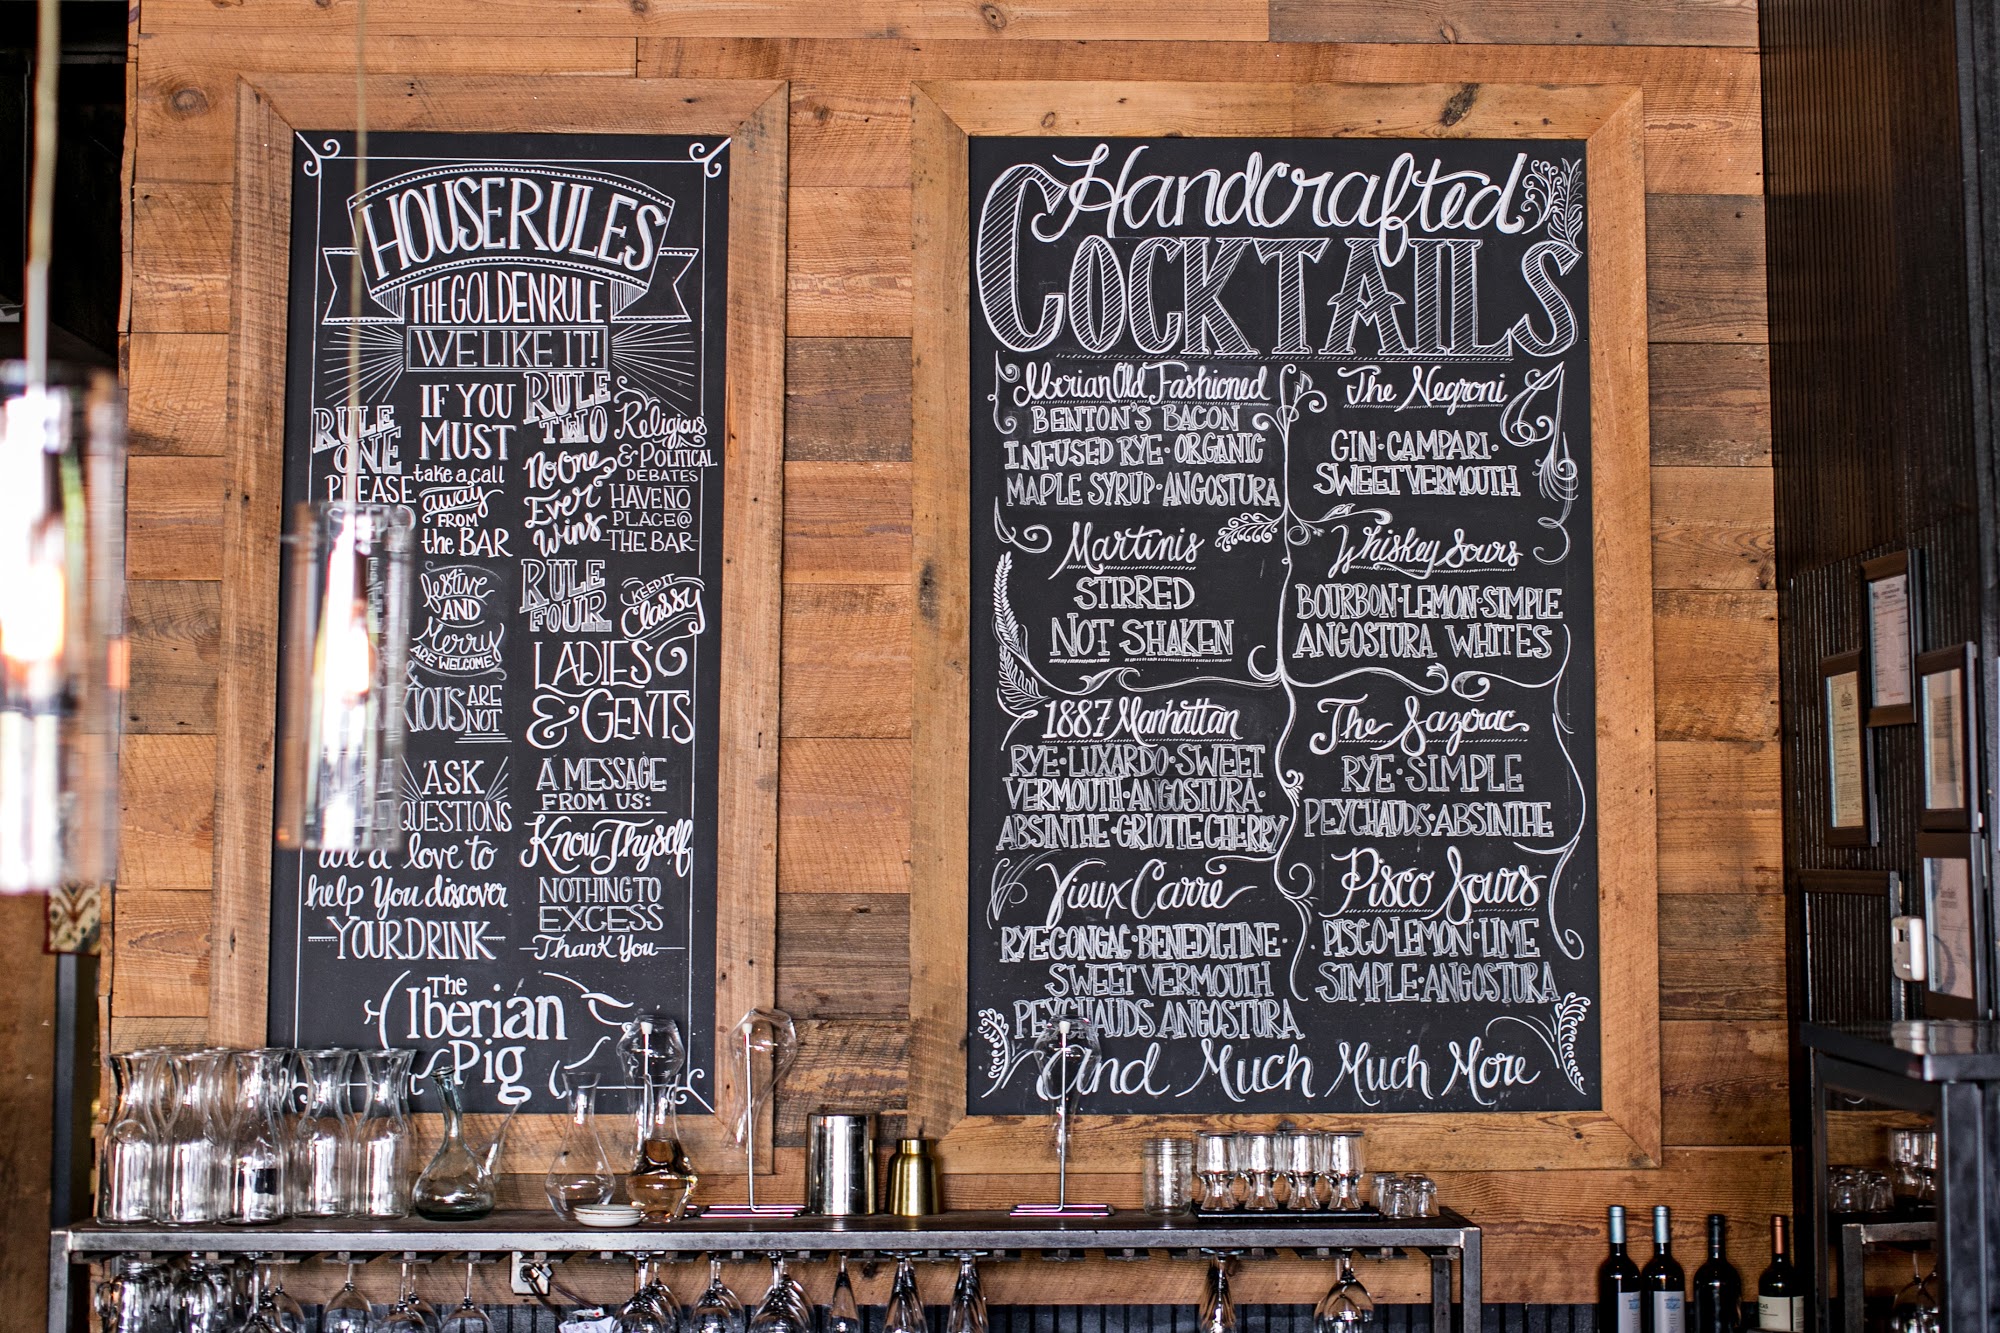 HOUSE RULES
THE GOLDEN RULE
WE LIKE IT!
RULE
ONE
PLEASE
IF YOU
MUST
take a call
away
FROM
the BAR
RULE
TWO
No One
Ever
Wins
Religious
& POLITICAL
DEBATES
HAVE NO
PLACE @
THE BAR
festive
AND
Merry
ARE WELCOME
&
ARE
NOT
RULE
FOUR
KEEP IT
Classy
LADIES
& GENTS
ASK
QUESTIONS
We'd love to
help You discover
YOUR DRINK
A MESSAGE
FROM US:
Know Thyself
NOTHING TO
EXCESS
Thank You
The
Iberian
Pig
Handcrafted
COCKTAILS
Iberian Old Fashioned
BENTON'S BACON
INFUSED RYE · ORGANIC
MAPLE SYRUP · ANGOSTURA
Martinis
STIRRED
NOT SHAKEN
1887 Manhattan
RYE · LUXARDO · SWEET
VERMOUTH · ANGOSTURA ·
ABSINTHE · GRIOTTE CHERRY
Vieux Carré
RYE CONGAC · BENEDICTINE ·
SWEET VERMOUTH
PEYCHAUDS ANGOSTURA
The Negroni
GIN · CAMPARI ·
SWEET VERMOUTH
Whiskey Sours
BOURBON · LEMON · SIMPLE
ANGOSTURA WHITES
The Sazerac
RYE · SIMPLE
PEYCHAUDS · ABSINTHE
Pisco Sours
PISCO · LEMON · LIME
SIMPLE · ANGOSTURA
And Much Much More